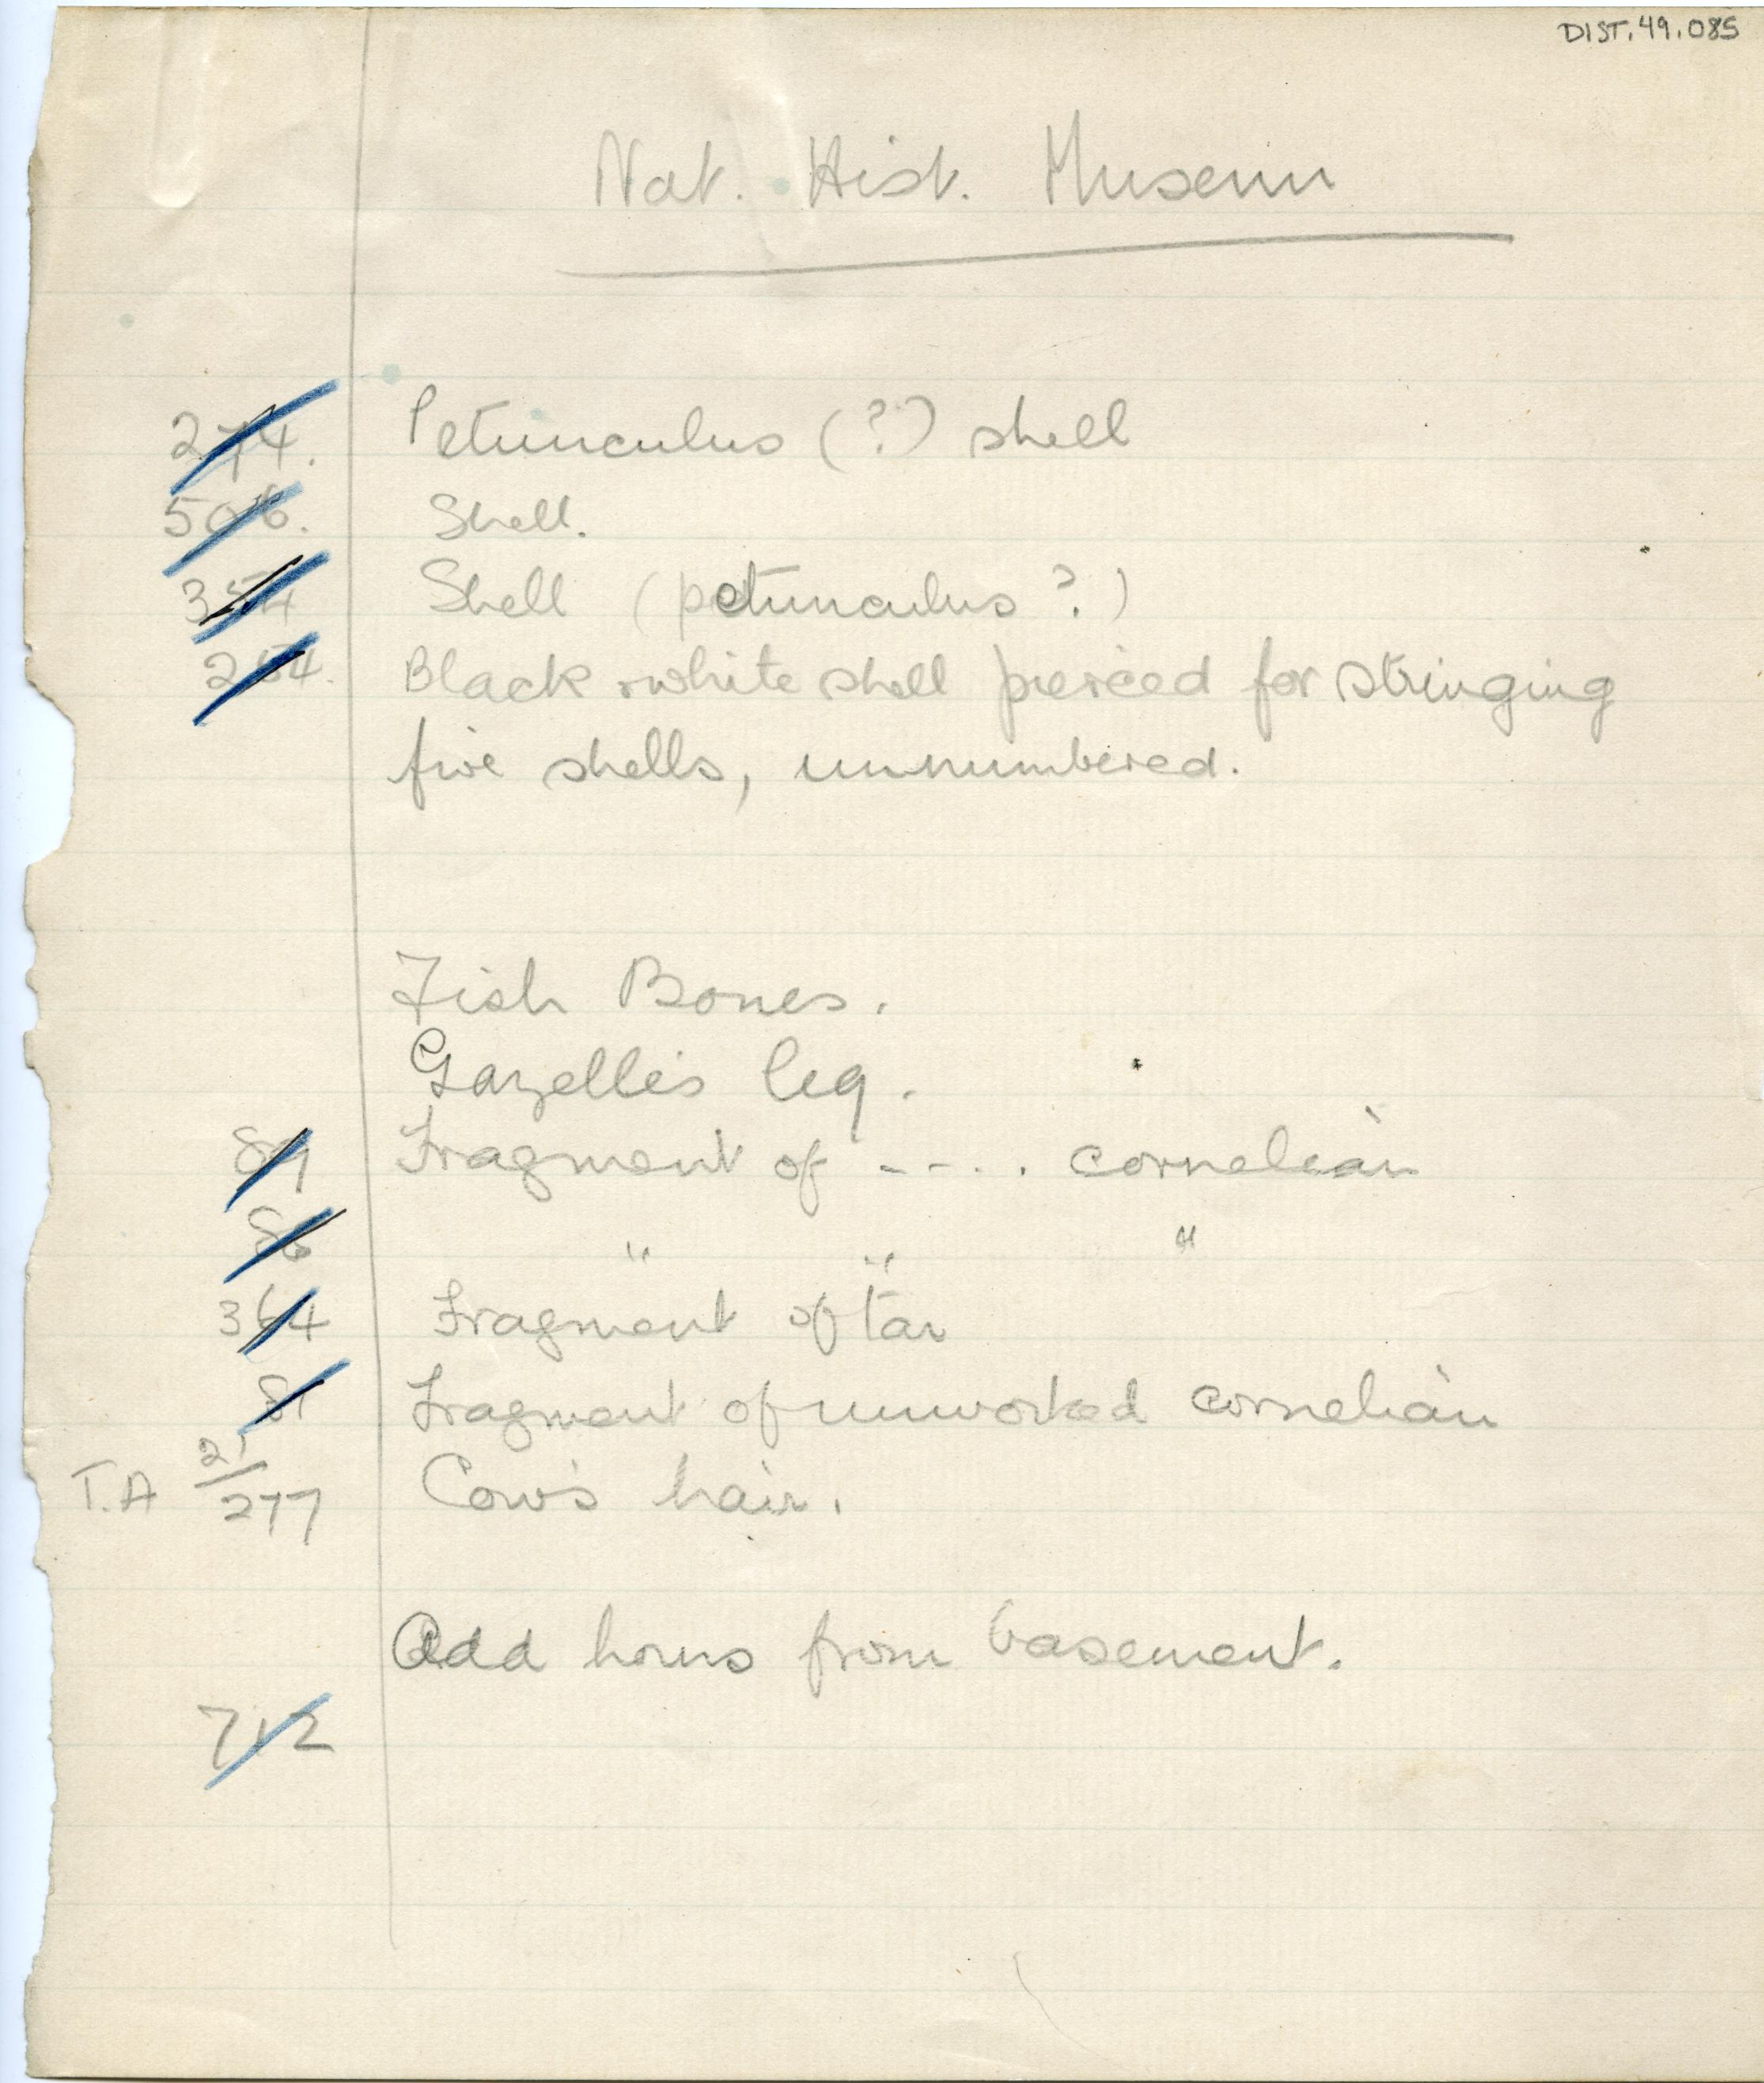 DIST.49.085
Nat. Hist. Museum
274. Petunculus (?) shell
506. Shell.
354 Shell (petunculus ?)
254. Black & white shell pierced for stringing
five shells, unnumbered.
Fish Bones.
Gazelle's leg.
89 Fragment of ---- cornelian
86 " " "
364 Fragment of tar
81 Fragment of unworked cornelian
T.A 21/277 Cow's hair.
Add horns from basement.
712